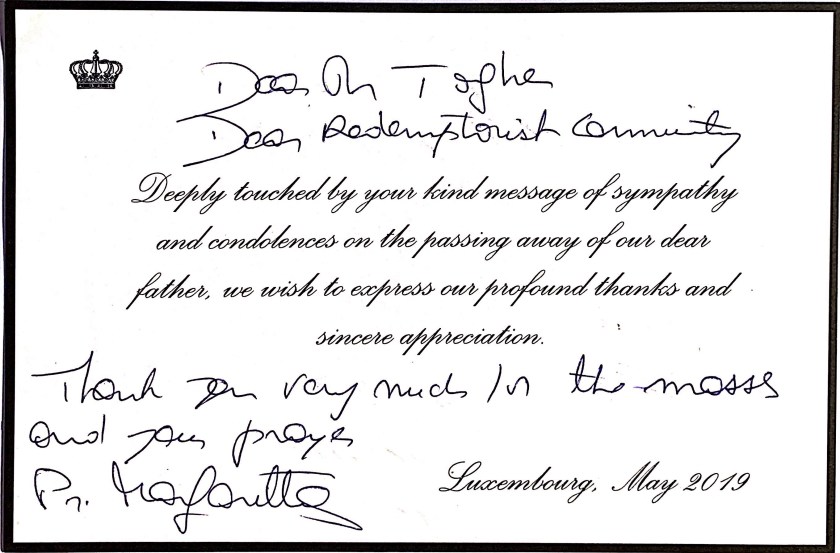 Dear Mr Togher
Dear Redemptorist Community
Deeply touched by your kind message of sympathy
and condolences on the passing away of our dear
father, we wish to express our profound thanks and
sincere appreciation.
Thank you very much for the masses
and your prayer
Pr. Margaretha
Luxembourg, May 2019